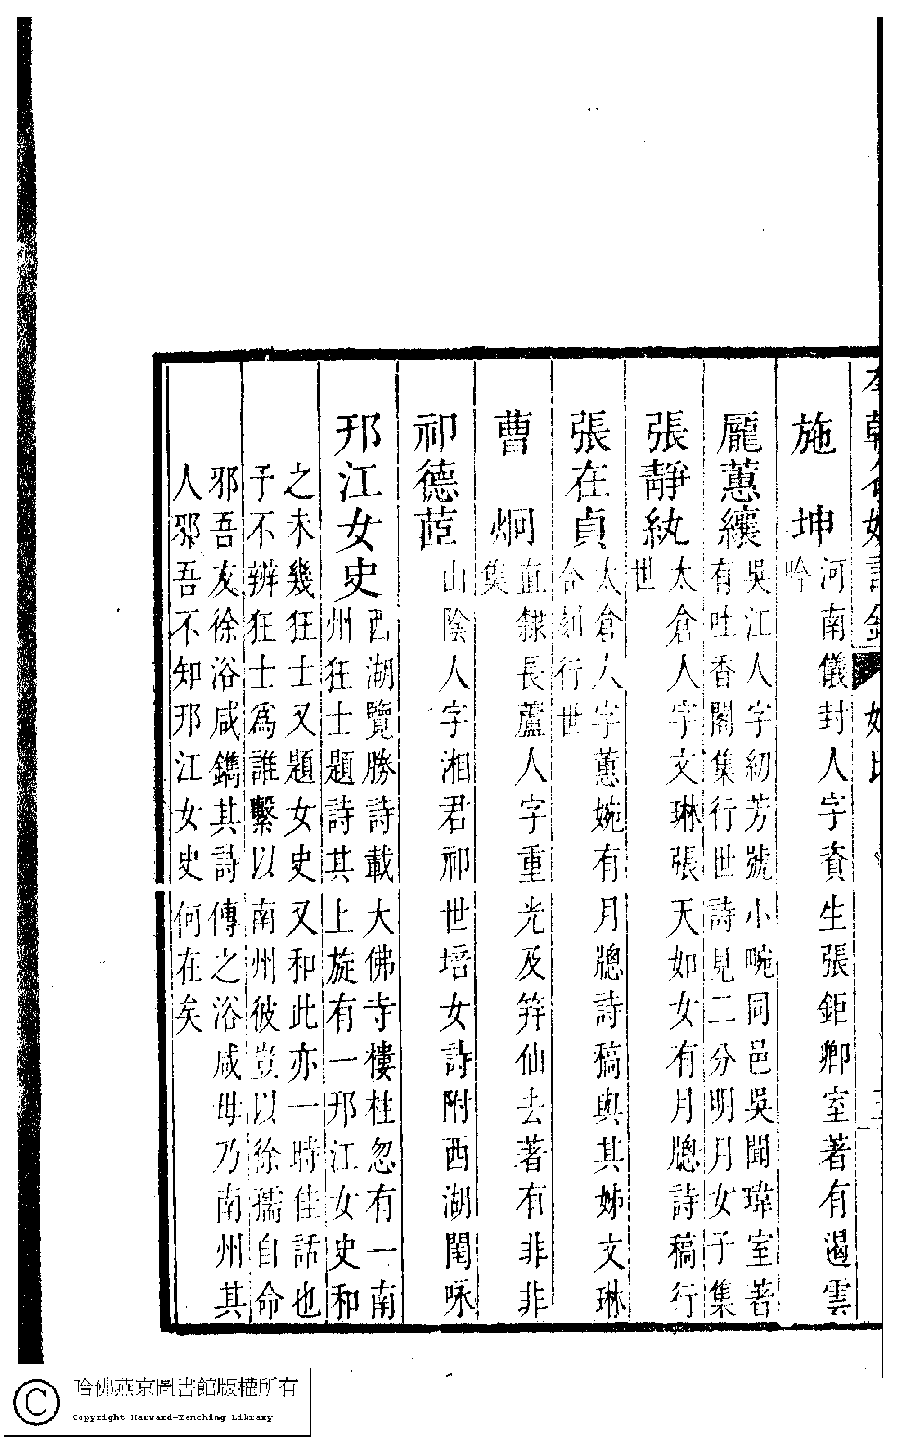 施坤
河南儀封人字資生張鉅卿室著有遏雲
吟
龎蕙纕
吳江人字紉芳號小畹同邑吳聞瑋室著
有吐香閣集行世詩見二分明月女子集
張靜紈
太倉人字文琳張天如女有月牕詩稿行
世
張在貞
太倉人字蕙婉有月牕詩稿與其姊文琳
合刻行世
曹炯
直隸長蘆人字重光及筓仙去著有非非
集
祁德茞
山陰人字湘君祁世培女詩附西湖閨咏
邗江女史
西湖覽勝詩載大佛寺樓柱忽有一南
州狂士題詩其上旋有一邗江女史和
之未幾狂士又題女史又和此亦一時佳話也
予不辨狂士爲誰繫以南州彼豈以徐孺自命
邪吾友徐浴咸鐫其詩傳之浴咸毋乃南州其
人邪吾不知邗江女史何在矣
哈佛燕京圖書館版權所有
Copyright Harvard-Yenching Library